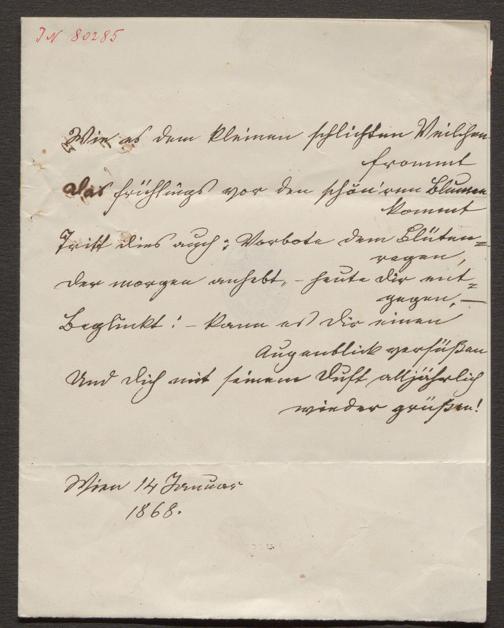 IN 80285
Wie es dem kleinen schlichten Veilchen
frommt
Das frühlings vor den schön'ren Blumen
kommt
Tritt dies auch: Vorbote dem Blüten=
regen,
Der morgen anhebt, – heute dir ent=
gegen, –
Beglückt! – kann es dir einen
Augenblick versüßen
Und dich mit seinem Duft alljährlich
wieder grüßen!
Wien 14 Januar
1868.